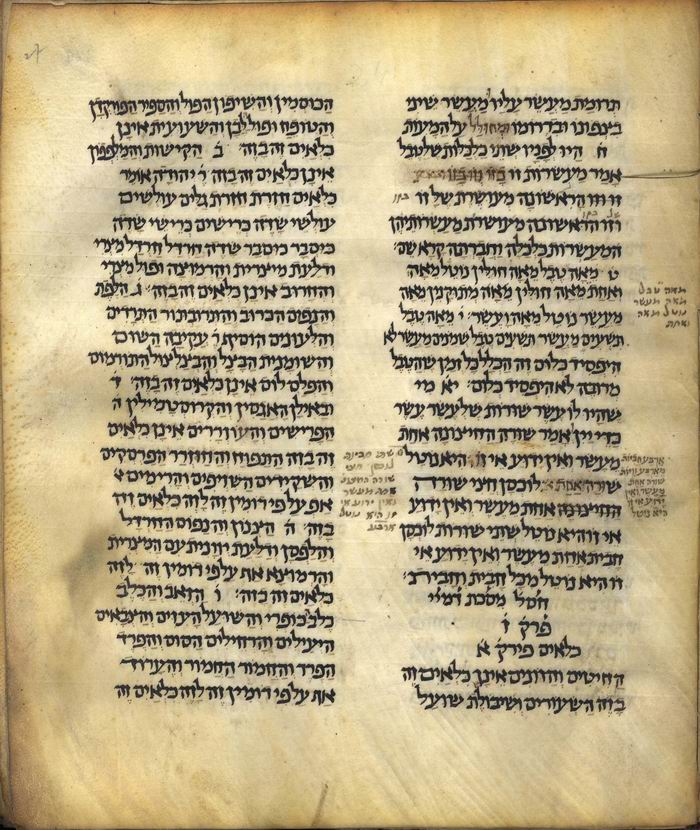 תרומת מעשר עליו מעשר שיני
בצפונו ובדרומו ומחולל על המעות
ח היו לפניו שתי כלכלות שלטבל
אמר מעשרות זו בזו
זו וזו הראשונה מעושרת של זו
וזו הראשונה מעושרת מעשרותיהן
המעשרות כלכלה וחברתה קרא שם
ט מאה טבל מאה חולין נוטל מאה
ואחת מאה חולין מאה מתוקנין מאה
מעשר נוטל מאה ועשר י מאה טבל
תשעים מעשר תשעים טבל שמנים מעשר לא
היפסיד כלום זה הכלל כל זמן שהטבל
מרובה לא היפסיד כלום יא מי
שהיו לו עשר שורות שלעשר עשר
כדי יין אמר שורה החיצונה אחת
מעשר ואין ידוע אי זו היא נוטל
שורה אחת לוכסן חצי שורה
החיצונה אחת מעשר ואין ידוע
אי זו היא נוטל שתי שורות לוכסן
חבית אחת מעשר ואין ידוע אי
זו היא נוטל מכל חבית וחבית
חסל מסכת דמיי
פרק ז
כלאים פירק א
החיטים והזונים אינן כלאים זה
בזה השעורים ושיבולת שועל
הכוסמין והשיפון הפול והספיר הפורקדן
והטופח ופול לבן והשעועית אינן
כלאים זה בזה ב הקישות והמלפפון
אינן כלאים זה בזה ר יהודה אומר
כלאים חזרת חזרת גלים עולשים
עולשי שדה כרישים כרישי שדה
כיסבר כיסבר שדה חרדל חרדל מצרי
ודלעת מיצרית והרמוצה ופול מצרי
והחרוב אינן כלאים זה בזה ג הלפת
והנפוס הכרוב והתרובתור התרדים
והלעונים הוסיף ר עקיבה השום
והשומנית הבצל והבצלצול התורמוס
והפלסלוס אינן כלאים זה בזה ד
ובאילן האגסין והקרוסטמילין ה
הפרישים והעוזררים אינן כלאים
זה בזה התפוח והחזרר הפרסקים
והשקידים השזופים והרימים
אף על פי דומין זה לזה כלאים זה
בזה ה הצנון והנפוס החרדל
והלפסן ודלעת יוונית עם המצרית
והרמוצא אף על פי דומין זה לזה
כלאים זה בזה ו הזאב והכלב
כלב כופרי והשועל העזים והצבאים
היעילים והרחילים הסוס והפרד
הפרד והחמור החמור והערוד
אף על פי דומין זה לזה כלאים זה